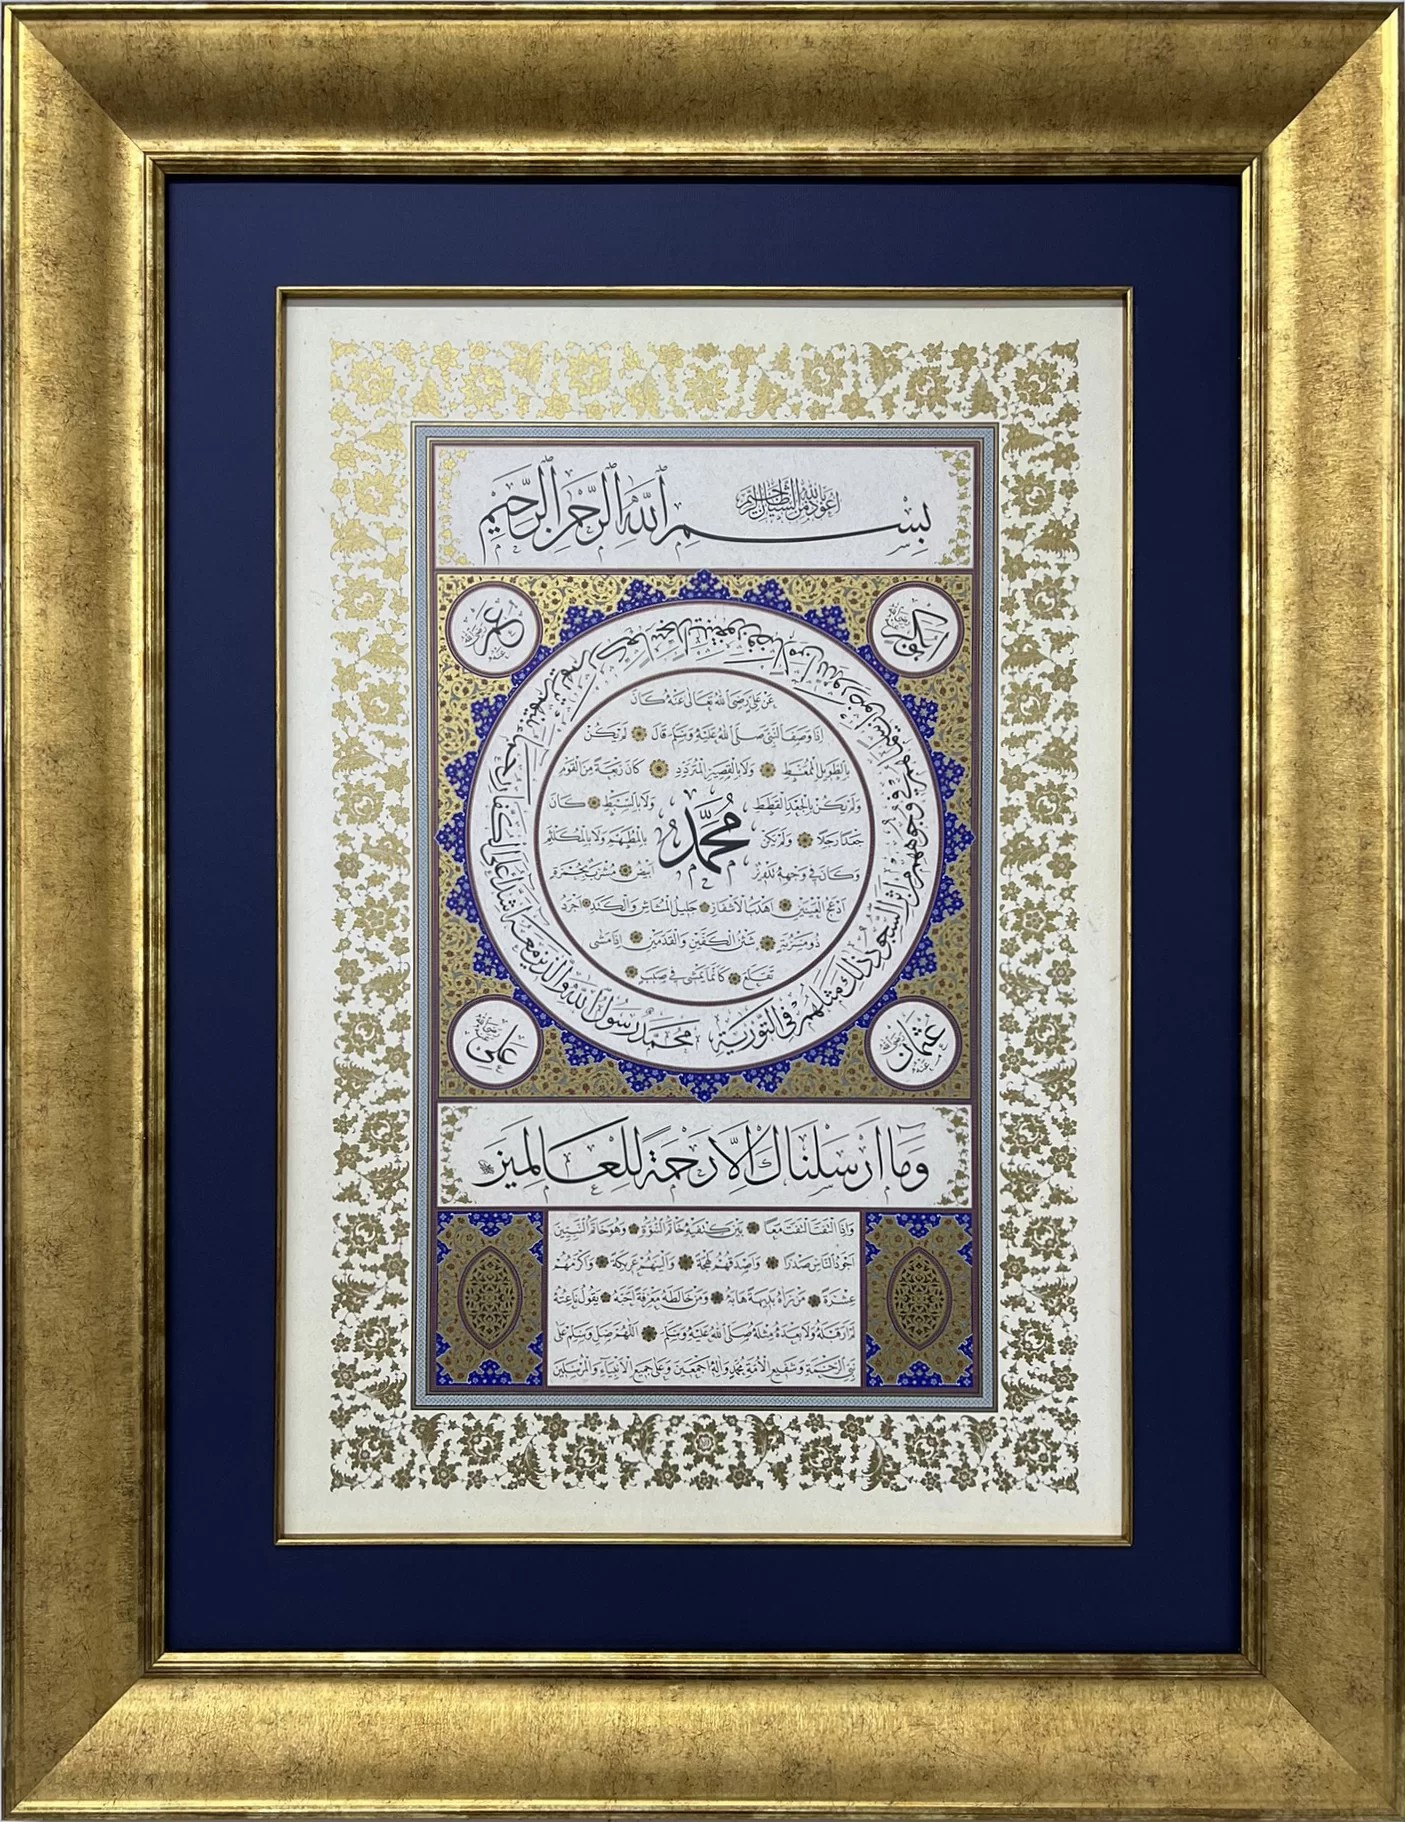 أعوذ بالله من الشيطان الرجيم
بِسْمِ ٱللّٰهِ ٱلرَّحْمٰنِ ٱلرَّحِيمِ
ابوبكر رضي الله عنه
عمر رضي الله عنه
محمد رسول الله والذين معه اشداء على الكفار رحماء بينهم تريهم ركعا سجدا يبتغون فضلا من الله ورضوانا سيماهم في وجوههم من اثر السجود ذلك مثلهم في التورية
عَنْ عَلِيٍّ رَضِيَ اللهُ تَعَالَى عَنْهُ كَانَ
اِذَا وَصَفَ النَّبِيَّ صَلَّى اللهُ عَلَيْهِ وَسَلَّمَ قَالَ لَمْ يَكُنْ
بِالطَّوِيلِ الْمُمَّغِطِ وَلَا بِالْقَصِيرِ الْمُتَرَدِّدِ كَانَ رَبْعَةً مِنَ الْقَوْمِ
وَلَمْ يَكُنْ بِالْجَعْدِ الْقَطَطِ وَلَا بِالسَّبِطِ كَانَ
جَعْدًا رَجِلًا وَلَمْ يَكُنْ بِالْمُطَهَّمِ وَلَا بِالْمُكَلْثَمِ
مُحَمَّد
وَكَانَ فِي وَجْهِهِ تَدْوِيرٌ اَبْيَضُ مُشْرَبٌ بِحُمْرَةٍ
اَدْعَجُ الْعَيْنَيْنِ اَهْدَبُ الْاَشْفَارِ جَلِيلُ الْمُشَاشِ وَالْكَتَدِ اَجْرَدُ
ذُو مَسْرُبَةٍ شَثْنُ الْكَفَّيْنِ وَالْقَدَمَيْنِ اِذَا مَشَى
تَقَلَّعَ كَاَنَّمَا يَمْشِي فِي صَبَبٍ
عثمان رضي الله عنه
علي رضي الله عنه
وَمَا اَرْسَلْنَاكَ اِلَّا رَحْمَةً لِلْعَالَمِينَ
وَاِذَا الْتَفَتَ الْتَفَتَ مَعًا بَيْنَ كَتِفَيْهِ خَاتَمُ النُّبُوَّةِ وَهُوَ خَاتَمُ النَّبِيِّينَ
اَجْوَدُ النَّاسِ صَدْرًا وَاَصْدَقُهُمْ لَهْجَةً وَاَلْيَنُهُمْ عَرِيكَةً وَاَكْرَمُهُمْ
عِشْرَةً مَنْ رَاٰهُ بَدِيهَةً هَابَهُ وَمَنْ خَالَطَهُ مَعْرِفَةً اَحَبَّهُ يَقُولُ نَاعِتُهُ
لَمْ اَرَ قَبْلَهُ وَلَا بَعْدَهُ مِثْلَهُ صَلَّى اللهُ عَلَيْهِ وَسَلَّمَ اَللّٰهُمَّ صَلِّ وَسَلِّمْ عَلٰى
نَبِيِّ الرَّحْمَةِ وَشَفِيعِ الْاُمَّةِ مُحَمَّدٍ وَاٰلِهِ اَجْمَعِينَ وَعَلٰى جَمِيعِ الْاَنْبِيَاءِ وَالْمُرْسَلِينَ